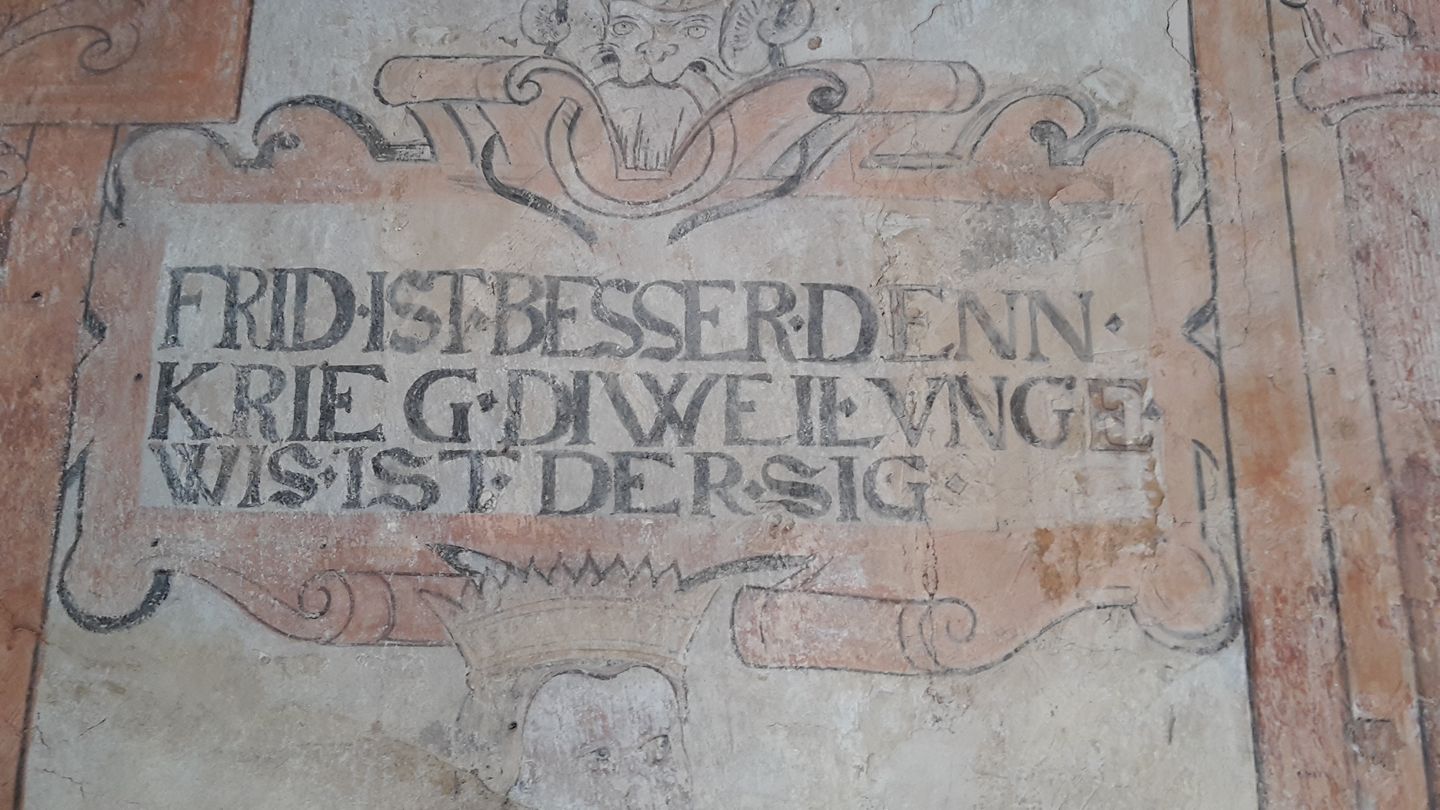 FRID·IST·BESSER·DENN·
KRIEG·DIWEIL·VNGE·
WIS·IST·DER·SIG·